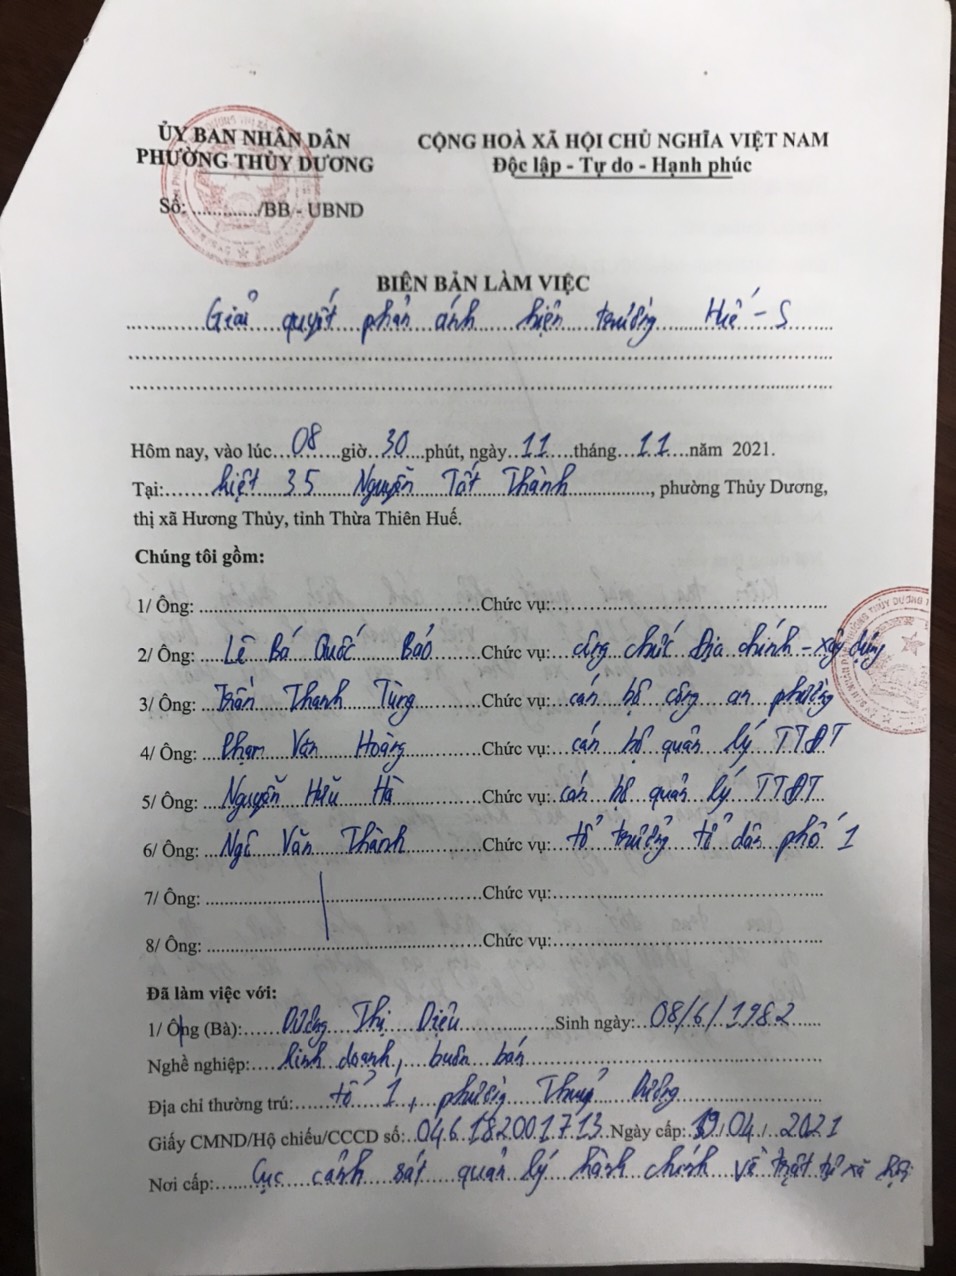 ỦY BAN NHÂN DÂN
PHƯỜNG THỦY DƯƠNG
Số: ............./BB - UBND
CỘNG HOÀ XÃ HỘI CHỦ NGHĨA VIỆT NAM
Độc lập - Tự do - Hạnh phúc
BIÊN BẢN LÀM VIỆC
Giải quyết phản ánh hiện trường Huế-S
Hôm nay, vào lúc 08 giờ 30 phút, ngày 11 tháng 11 năm 2021.
Tại: kiệt 35 Nguyễn Tất Thành, phường Thủy Dương,
thị xã Hương Thủy, tỉnh Thừa Thiên Huế.
Chúng tôi gồm:
1/ Ông: ............ Chức vụ: ............
2/ Ông: Lê Bá Quốc Bảo Chức vụ: công chức Địa chính - xây dựng
3/ Ông: Trần Thanh Tùng Chức vụ: cán bộ công an phường
4/ Ông: Phạm Văn Hoàng Chức vụ: cán bộ quản lý TTĐT
5/ Ông: Nguyễn Hữu Hà Chức vụ: cán bộ quản lý TTĐT
6/ Ông: Ngô Văn Thành Chức vụ: tổ trưởng tổ dân phố 1
7/ Ông: ............ Chức vụ: ............
8/ Ông: ............ Chức vụ: ............
Đã làm việc với:
1/ Ông (Bà): Dương Thị Diệu Sinh ngày: 08/6/1982
Nghề nghiệp: kinh doanh, buôn bán
Địa chỉ thường trú: tổ 1, phường Thuỷ Dương
Giấy CMND/Hộ chiếu/CCCD số: 046182001713 Ngày cấp: 19/04/2021
Nơi cấp: Cục cảnh sát quản lý hành chính về trật tự xã hội